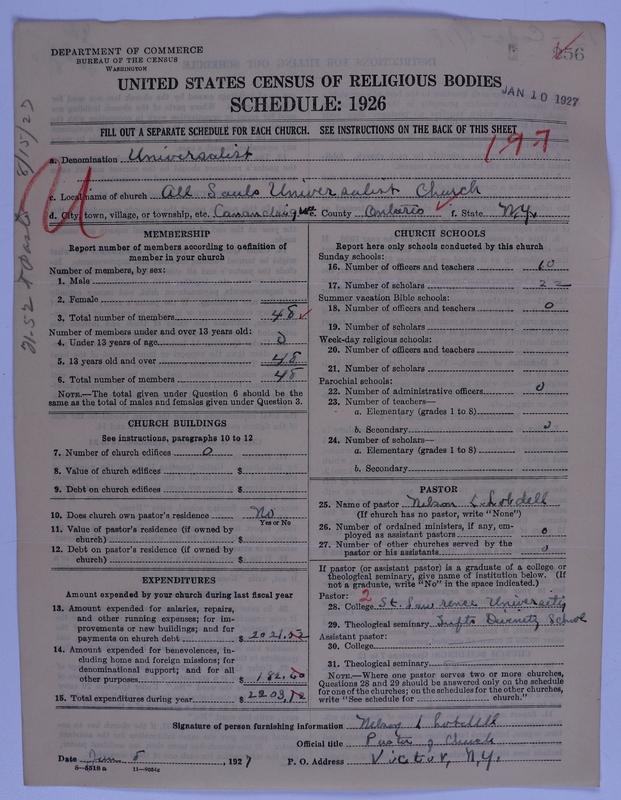 DEPARTMENT OF COMMERCE
BUREAU OF THE CENSUS
WASHINGTON
256
UNITED STATES CENSUS OF RELIGIOUS BODIES
JAN 10 1927
SCHEDULE: 1926
FILL OUT A SEPARATE SCHEDULE FOR EACH CHURCH. SEE INSTRUCTIONS ON THE BACK OF THIS SHEET
197
a. Denomination Universalist
c. Local name of church All Souls Universalist Church
d. City, town, village, or township, etc. Canandaigua e. County Ontario f. State N.Y.
MEMBERSHIP
Report number of members according to definition of
member in your church
Number of members, by sex:
1. Male
2. Female
3. Total number of members 48
Number of members under and over 13 years old:
4. Under 13 years of age 0
5. 13 years old and over 48
6. Total number of members 48
NOTE.—The total given under Question 6 should be
the same as the total of males and females given under Question 3.
CHURCH BUILDINGS
See instructions, paragraphs 10 to 12
7. Number of church edifices 0
8. Value of church edifices $
9. Debt on church edifices $
10. Does church own pastor's residence No
Yes or No
11. Value of pastor's residence (if owned by
church) $
12. Debt on pastor's residence (if owned by
church) $
EXPENDITURES
Amount expended by your church during last fiscal year
13. Amount expended for salaries, repairs,
and other running expenses; for im-
provements or new buildings; and for
payments on church debt $ 2021.52
14. Amount expended for benevolences, in-
cluding home and foreign missions; for
denominational support; and for all
other purposes $ 182.60
15. Total expenditures during year $
CHURCH SCHOOLS
Report here only schools conducted by this church
Sunday schools:
16. Number of officers and teachers 10
17. Number of scholars 22
Summer vacation Bible schools:
18. Number of officers and teachers 0
19. Number of scholars
Week-day religious schools:
20. Number of officers and teachers
21. Number of scholars
Parochial schools:
22. Number of administrative officers 0
23. Number of teachers—
a. Elementary (grades 1 to 8)
b. Secondary 0
24. Number of scholars—
a. Elementary (grades 1 to 8)
b. Secondary
PASTOR
25. Name of pastor Nelson L. Lobdell
(If church has no pastor, write "None")
26. Number of ordained ministers, if any, em-
ployed as assistant pastors 0
27. Number of other churches served by the
pastor or his assistants 0
If pastor (or assistant pastor) is a graduate of a college or
theological seminary, give name of institution below. (If
not a graduate, write "No" in the space indicated.)
Pastor: 2
28. College St. Lawrence University
29. Theological seminary Tufts Divinity School
Assistant pastor:
30. College
31. Theological seminary
NOTE.—Where one pastor serves two or more churches,
Questions 28 and 29 should be answered only on the schedule
for one of the churches; on the schedules for the other churches,
write "See schedule for church."
Signature of person furnishing information Nelson L Lobdell
Official title Pastor of Church
Date Jan 5, 1927 P. O. Address Victor, N.Y.
8—5518 a 11—9054